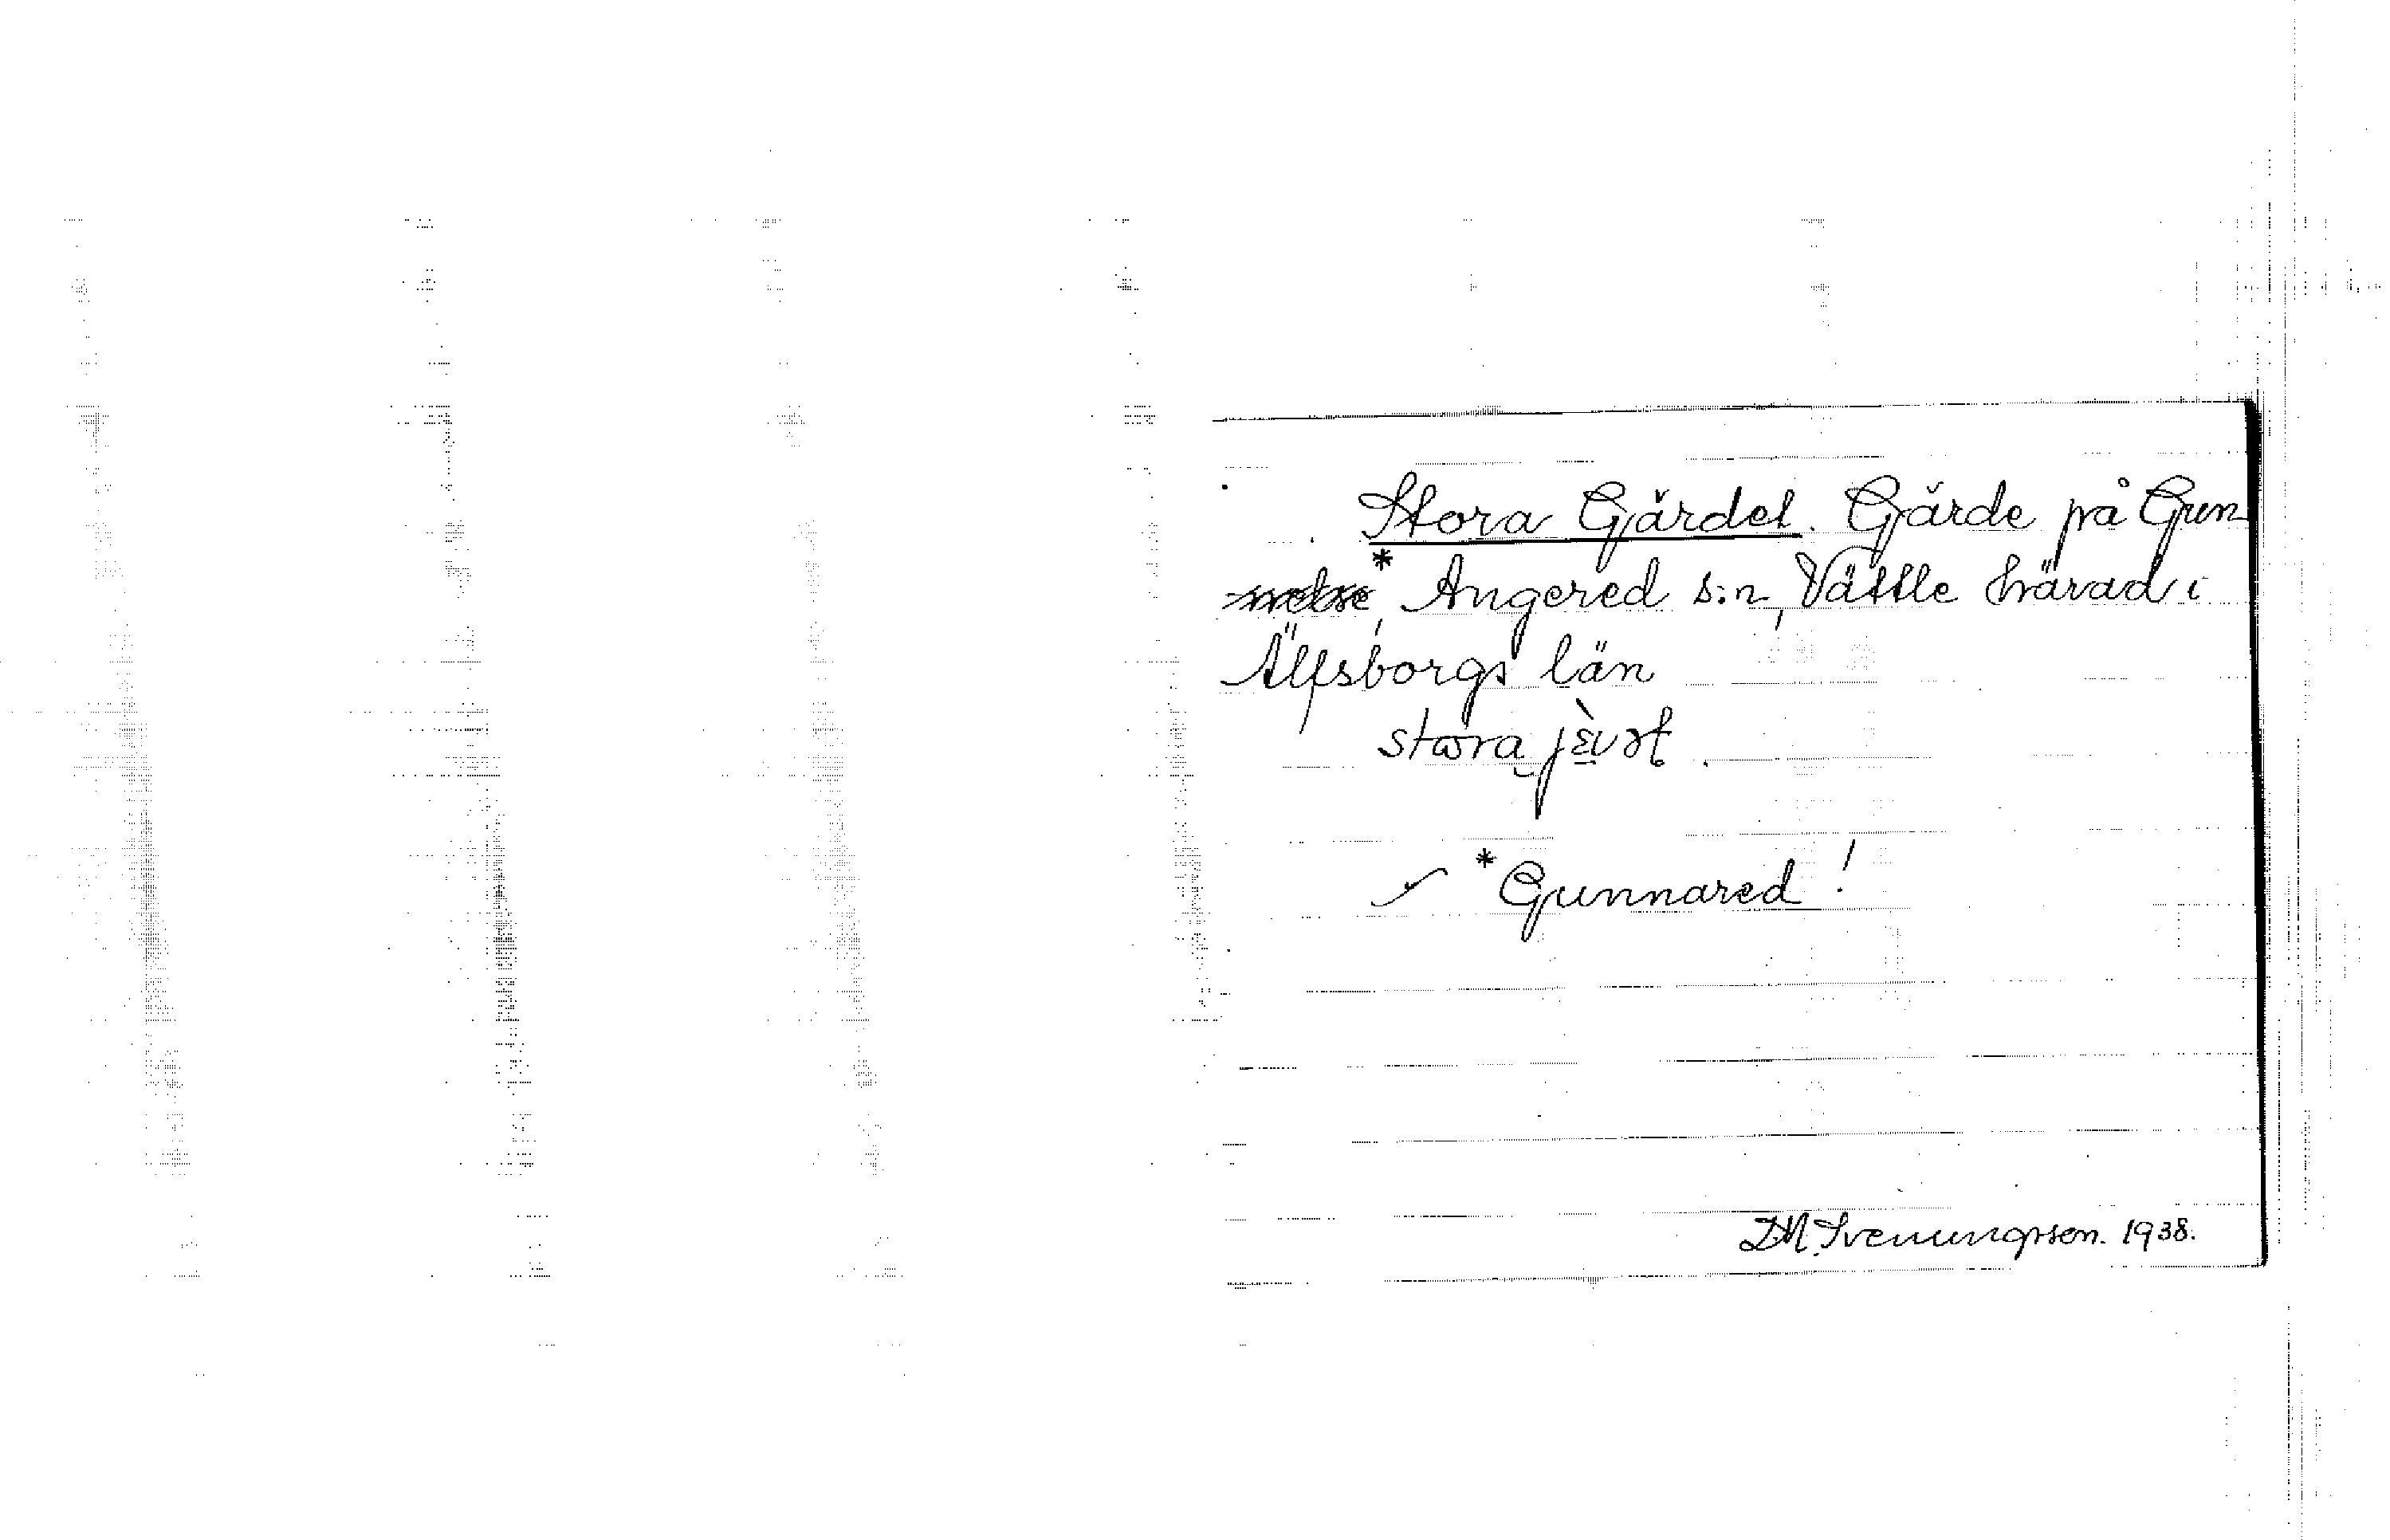 Stora Gärdet. Gärde på Gun
* Angered s:n, Vättle härad i
Älfsborgs län
stora
* Gunnared!
D.M. Svenungsson. 1938.